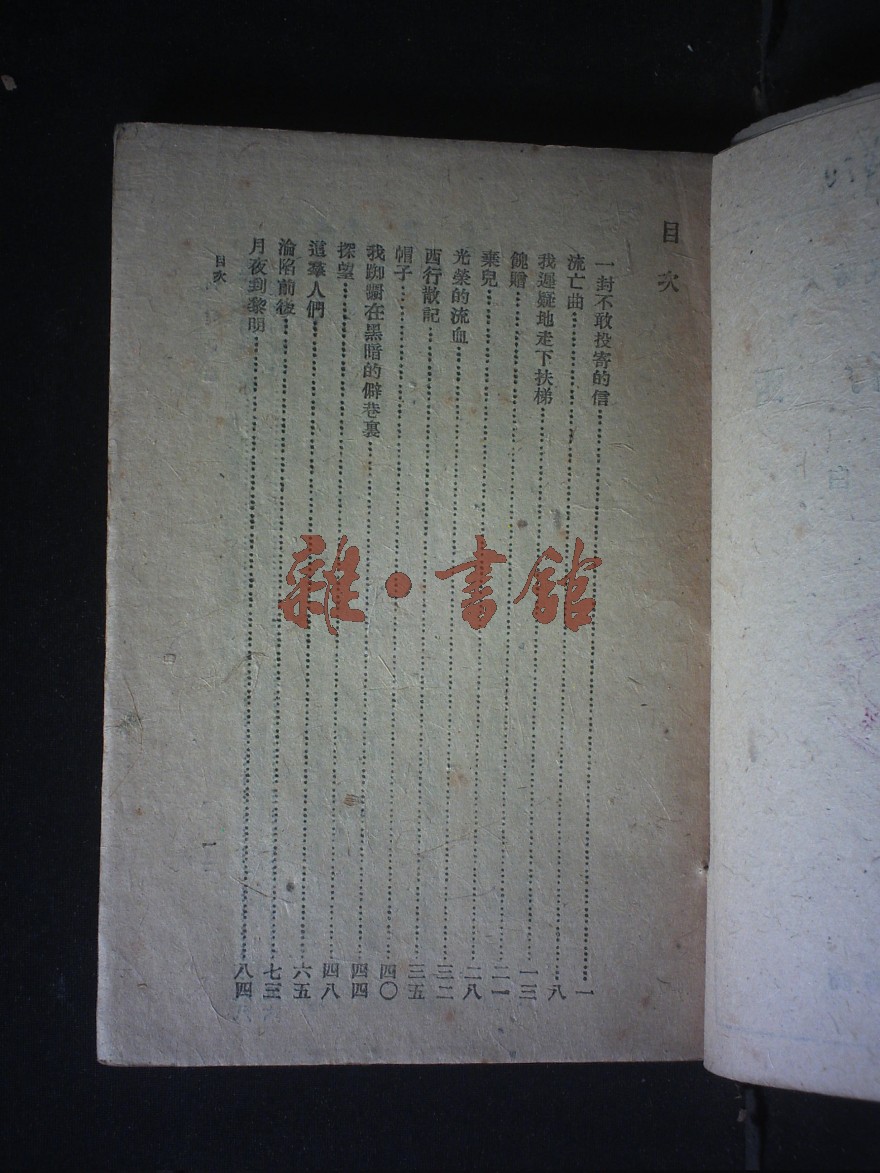 目次
一封不敢投寄的信……一
流亡曲……八
我遲疑地走下扶梯……一三
餽贈……二一
棄兒……二八
光榮的流血……三二
西行散記……三五
帽子……四〇
我踟躕在黑暗的僻巷裏……四四
探望……四八
這羣人們……六五
淪陷前後……七三
月夜到黎明……八四
目次
一
雜·書館